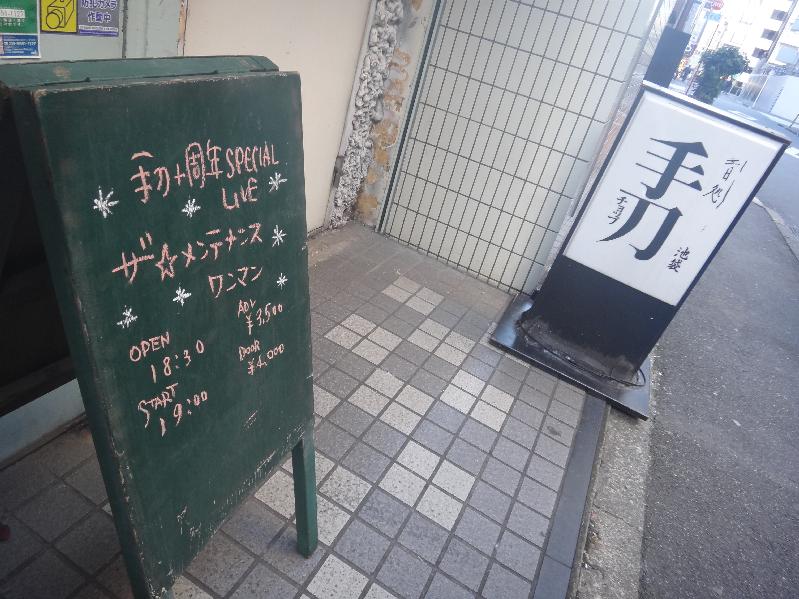 防犯カメラ
作動中
手刀十周年 SPECIAL
LIVE
ザ☆メンテナンス
ワンマン
OPEN
18:30
START
19:00
ADV
¥3,500
DOOR
¥4,000
音処
手刀
チョップ
池袋